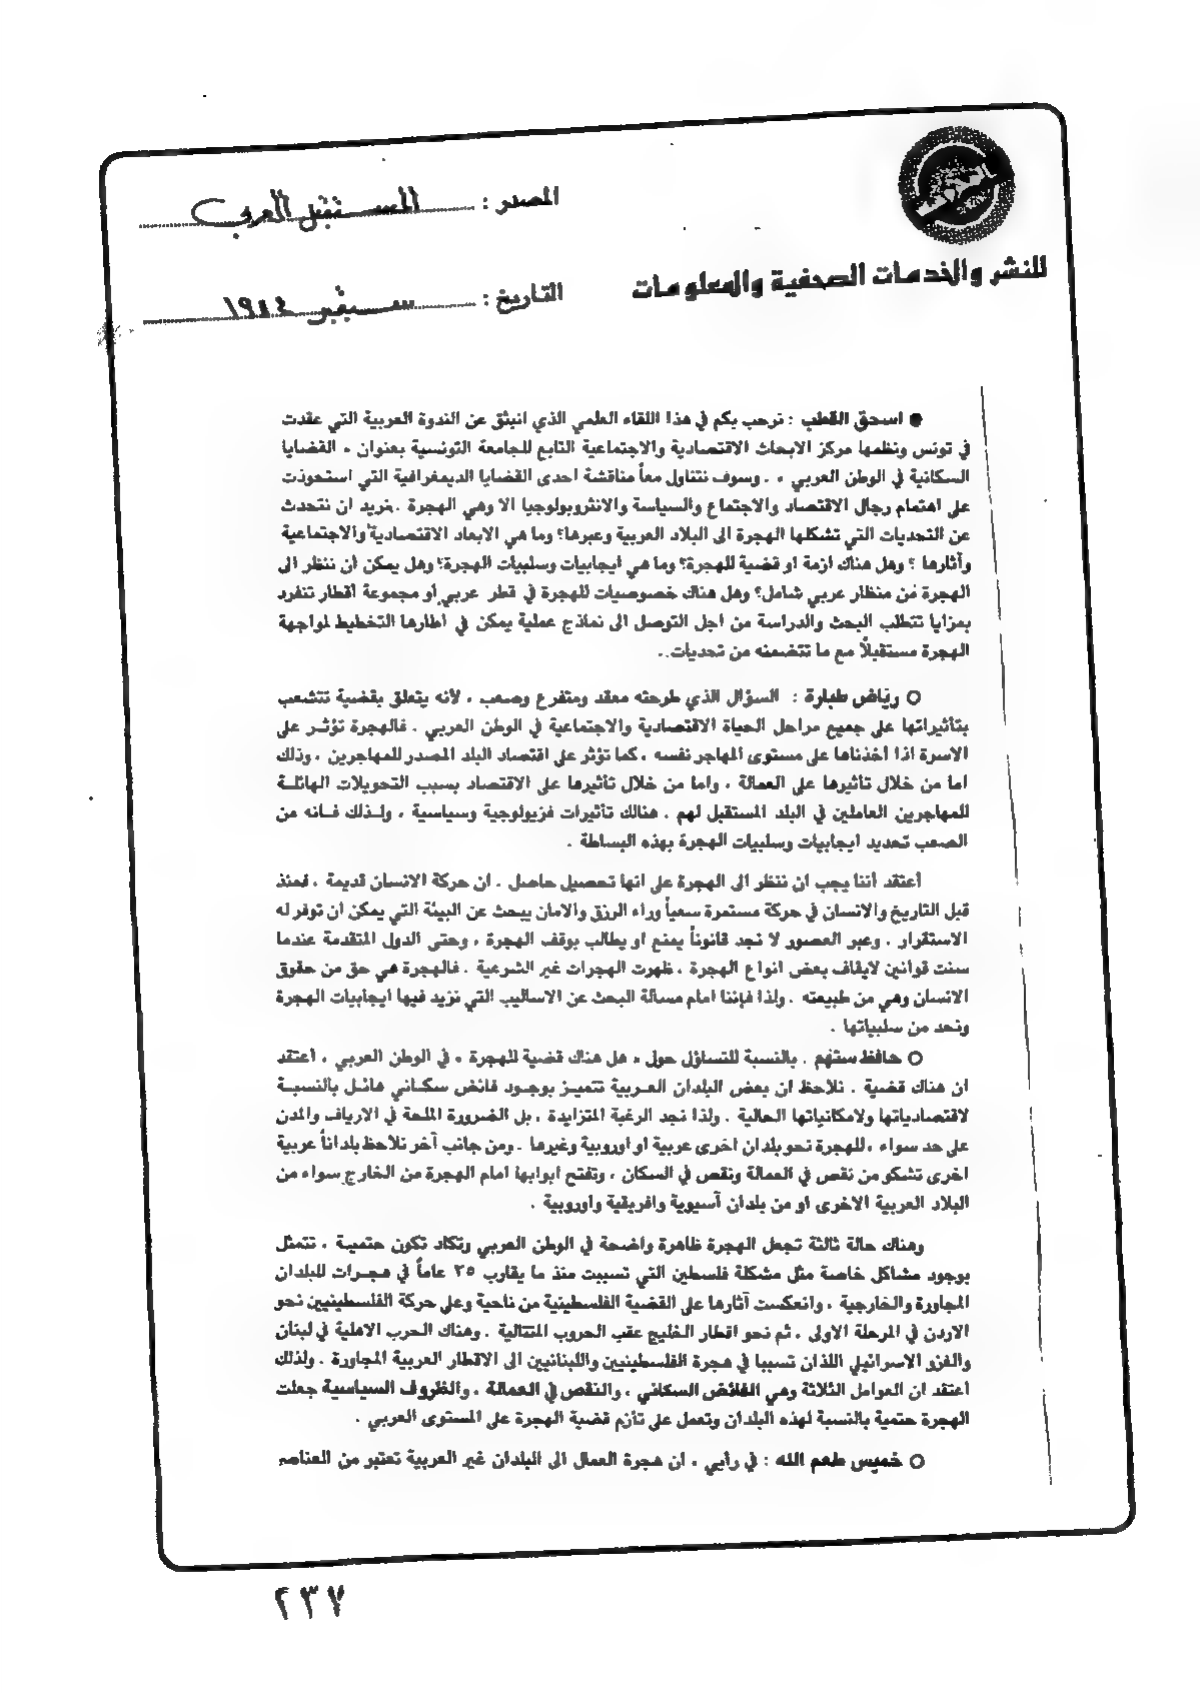 المصدر : المستقبل العربي
للنشر والخدمات الصحفية والمعلومات
التاريخ : سبتمبر ١٩٨٤
● اسحق القطب : نرحب بكم في هذا اللقاء العلمي الذي انبثق عن الندوة العربية التي عقدت
في تونس ونظمها مركز الابحاث الاقتصادية والاجتماعية التابع للجامعة التونسية بعنوان « القضايا
السكانية في الوطن العربي » . وسوف نتناول معاً مناقشة احدى القضايا الديمغرافية التي استحوذت
على اهتمام رجال الاقتصاد والاجتماع والسياسة والانثروبولوجيا الا وهي الهجرة . نريد ان نتحدث
عن التحديات التي تشكلها الهجرة الى البلاد العربية وعبرها؟ وما هي الابعاد الاقتصادية والاجتماعية
وآثارها ؟ وهل هناك ازمة او قضية للهجرة؟ وما هي ايجابيات وسلبيات الهجرة؟ وهل يمكن أن ننظر الى
الهجرة من منظار عربي شامل؟ وهل هناك خصوصيات للهجرة في قطر عربي او مجموعة أقطار تنفرد
بمزايا تتطلب البحث والدراسة من اجل التوصل الى نماذج عملية يمكن في اطارها التخطيط لمواجهة
الهجرة مستقبلاً مع ما تتضمنه من تحديات .
○ رياض طبارة : السؤال الذي طرحته معقد ومتفرع وصعب ، لأنه يتعلق بقضية تتشعب
بتأثيراتها على جميع مراحل الحياة الاقتصادية والاجتماعية في الوطن العربي . فالهجرة تؤثر على
الاسرة اذا أخذناها على مستوى المهاجر نفسه ، كما تؤثر على اقتصاد البلد المصدر للمهاجرين ، وذلك
اما من خلال تأثيرها على العمالة ، واما من خلال تأثيرها على الاقتصاد بسبب التحويلات الهائلة
للمهاجرين العاملين في البلد المستقبل لهم . هنالك تأثيرات فزيولوجية وسياسية ، ولذلك فانه من
الصعب تحديد ايجابيات وسلبيات الهجرة بهذه البساطة .
أعتقد أننا يجب ان ننظر الى الهجرة على انها تحصيل حاصل . ان حركة الانسان قديمة ، فمنذ
قبل التاريخ والانسان في حركة مستمرة سعياً وراء الرزق والامان يبحث عن البيئة التي يمكن ان توفر له
الاستقرار . وعبر العصور لا نجد قانوناً يمنع او يطالب بوقف الهجرة ، وحتى الدول المتقدمة عندما
سنت قوانين لايقاف بعض انواع الهجرة ، ظهرت الهجرات غير الشرعية . فالهجرة هي حق من حقوق
الانسان وهي من طبيعته . ولذا فإننا امام مسألة البحث عن الاساليب التي نزيد فيها ايجابيات الهجرة
ونحد من سلبياتها .
○ حافظ ستهم . بالنسبة للتساؤل حول « هل هناك قضية للهجرة » في الوطن العربي ، أعتقد
ان هناك قضية . نلاحظ ان بعض البلدان العربية تتميز بوجود فائض سكاني هائل بالنسبة
لاقتصادياتها ولامكانياتها الحالية . ولذا نجد الرغبة المتزايدة ، بل الضرورة الملحة في الارياف والمدن
على حد سواء ، للهجرة نحو بلدان اخرى عربية او اوروبية وغيرها . ومن جانب آخر نلاحظ بلداناً عربية
اخرى تشكو من نقص في العمالة ونقص في السكان ، وتفتح ابوابها امام الهجرة من الخارج سواء من
البلاد العربية الاخرى او من بلدان آسيوية وافريقية واوروبية .
وهناك حالة ثالثة تجعل الهجرة ظاهرة واضحة في الوطن العربي وتكاد تكون حتمية ، تتمثل
بوجود مشاكل خاصة مثل مشكلة فلسطين التي تسببت منذ ما يقارب ٣٥ عاماً في هجرات للبلدان
المجاورة والخارجية ، وانعكست آثارها على القضية الفلسطينية من ناحية وعلى حركة الفلسطينيين نحو
الاردن في المرحلة الاولى ، ثم نحو اقطار الخليج عقب الحروب المتتالية . وهناك الحرب الاهلية في لبنان
والغزو الاسرائيلي اللذان تسببا في هجرة الفلسطينيين واللبنانيين الى الاقطار العربية المجاورة . ولذلك
أعتقد ان العوامل الثلاثة وهي الفائض السكاني ، والنقص في العمالة ، والظروف السياسية جعلت
الهجرة حتمية بالنسبة لهذه البلدان وتعمل على تأزم قضية الهجرة على المستوى العربي .
○ خميس طعم الله : في رأيي ، ان هجرة العمال الى البلدان غير العربية تعتبر من العناصر
٢٣٧